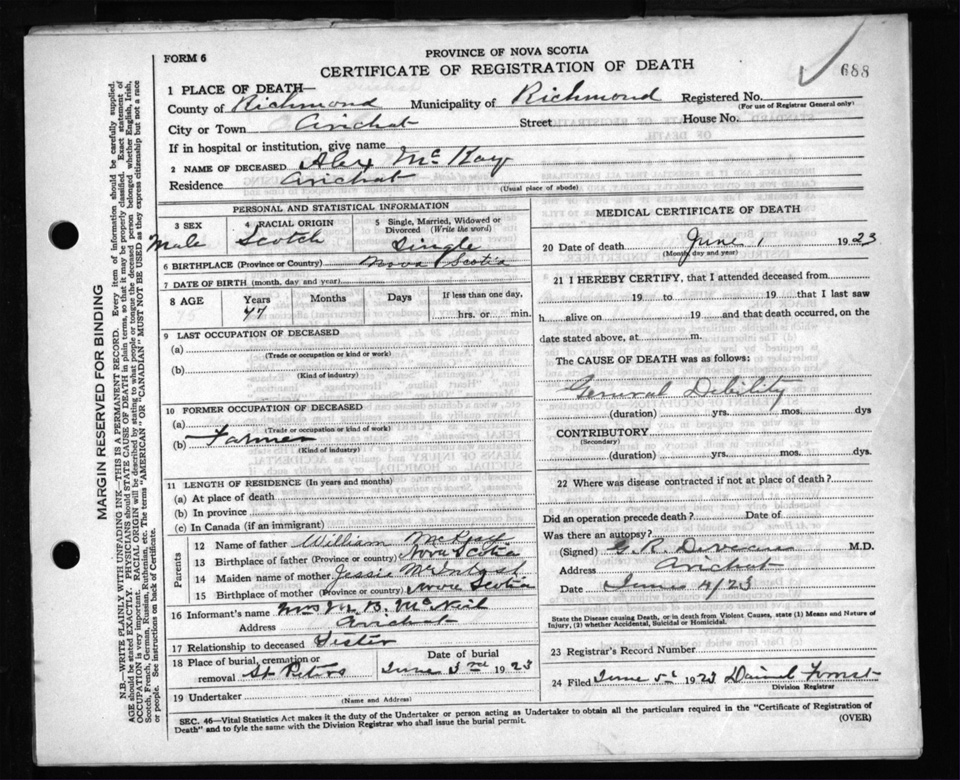 PROVINCE OF NOVA SCOTIA
FORM 6
CERTIFICATE OF REGISTRATION OF DEATH
688
1 PLACE OF DEATH—
County of Richmond Municipality of Richmond Registered No.
(For use of Registrar General only)
City or Town Arichat Street House No.
If in hospital or institution, give name
2 NAME OF DECEASED Alex McKay
Residence Arichat
(Usual place of abode)
PERSONAL AND STATISTICAL INFORMATION
3 SEX 4 RACIAL ORIGIN 5 Single, Married, Widowed or Divorced (Write the word)
Male Scotch Single
6 BIRTHPLACE (Province or Country) Nova Scotia
7 DATE OF BIRTH (month, day and year)
8 AGE Years Months Days If less than one day,
75 77 hrs. or min.
9 LAST OCCUPATION OF DECEASED
(a)
(Trade or occupation or kind or work)
(b)
(Kind of industry)
10 FORMER OCCUPATION OF DECEASED
(a)
(Trade or occupation or kind of work)
(b) Farmer
(Kind of industry)
11 LENGTH OF RESIDENCE (In years and months)
(a) At place of death
(b) In province
(c) In Canada (if an immigrant)
Parents
12 Name of father William McKay
13 Birthplace of father (Province or country) Nova Scotia
14 Maiden name of mother Jessie McIntosh
15 Birthplace of mother (Province or country) Nova Scotia
16 Informant's name Mrs M. B. McNeil
Address Arichat
17 Relationship to deceased Sister
18 Place of burial, cremation or removal St Peters
Date of burial
June 3rd 1923
19 Undertaker
(Name and Address)
MEDICAL CERTIFICATE OF DEATH
20 Date of death June 1 1923
(Month, day and year)
21 I HEREBY CERTIFY, that I attended deceased from
19 to 19 that I last saw
h alive on 19 and that death occurred, on the
date stated above, at m.
The CAUSE OF DEATH was as follows:
General Debility
(duration) yrs. mos. dys
CONTRIBUTORY
(Secondary)
(duration) yrs. mos. dys.
22 Where was disease contracted if not at place of death?
Did an operation precede death? Date of
Was there an autopsy?
(Signed) G. R. Deveau M.D.
Address Arichat
Date June 4/23
State the Disease causing Death, or in death from Violent Causes, state (1) Means and Nature of
Injury, (2) whether Accidental, Suicidal or Homicidal.
23 Registrar's Record Number
24 Filed June 5 1923 Daniel
Division Registrar
SEC. 46—Vital Statistics Act makes it the duty of the Undertaker or person acting as Undertaker to obtain all the particulars required in the "Certificate of Registration of
Death" and to fyle the same with the Division Registrar who shall issue the burial permit.
(OVER)
MARGIN RESERVED FOR BINDING
N.B.—WRITE PLAINLY WITH UNFADING INK—THIS IS A PERMANENT RECORD. Every item of information should be carefully supplied.
AGE should be stated EXACTLY. PHYSICIANS should STATE CAUSE OF DEATH in plain terms, so that it may be properly classified. Exact statement of
OCCUPATION is very important. RACIAL ORIGIN will be described by stating to what people or tongue the deceased person belonged whether English, Irish,
Scotch, French, German, Russian, Ruthenian, etc. The terms "AMERICAN" or "CANADIAN" MUST NOT BE USED as they express citizenship but not a race
or people. See instructions on back of Certificate.